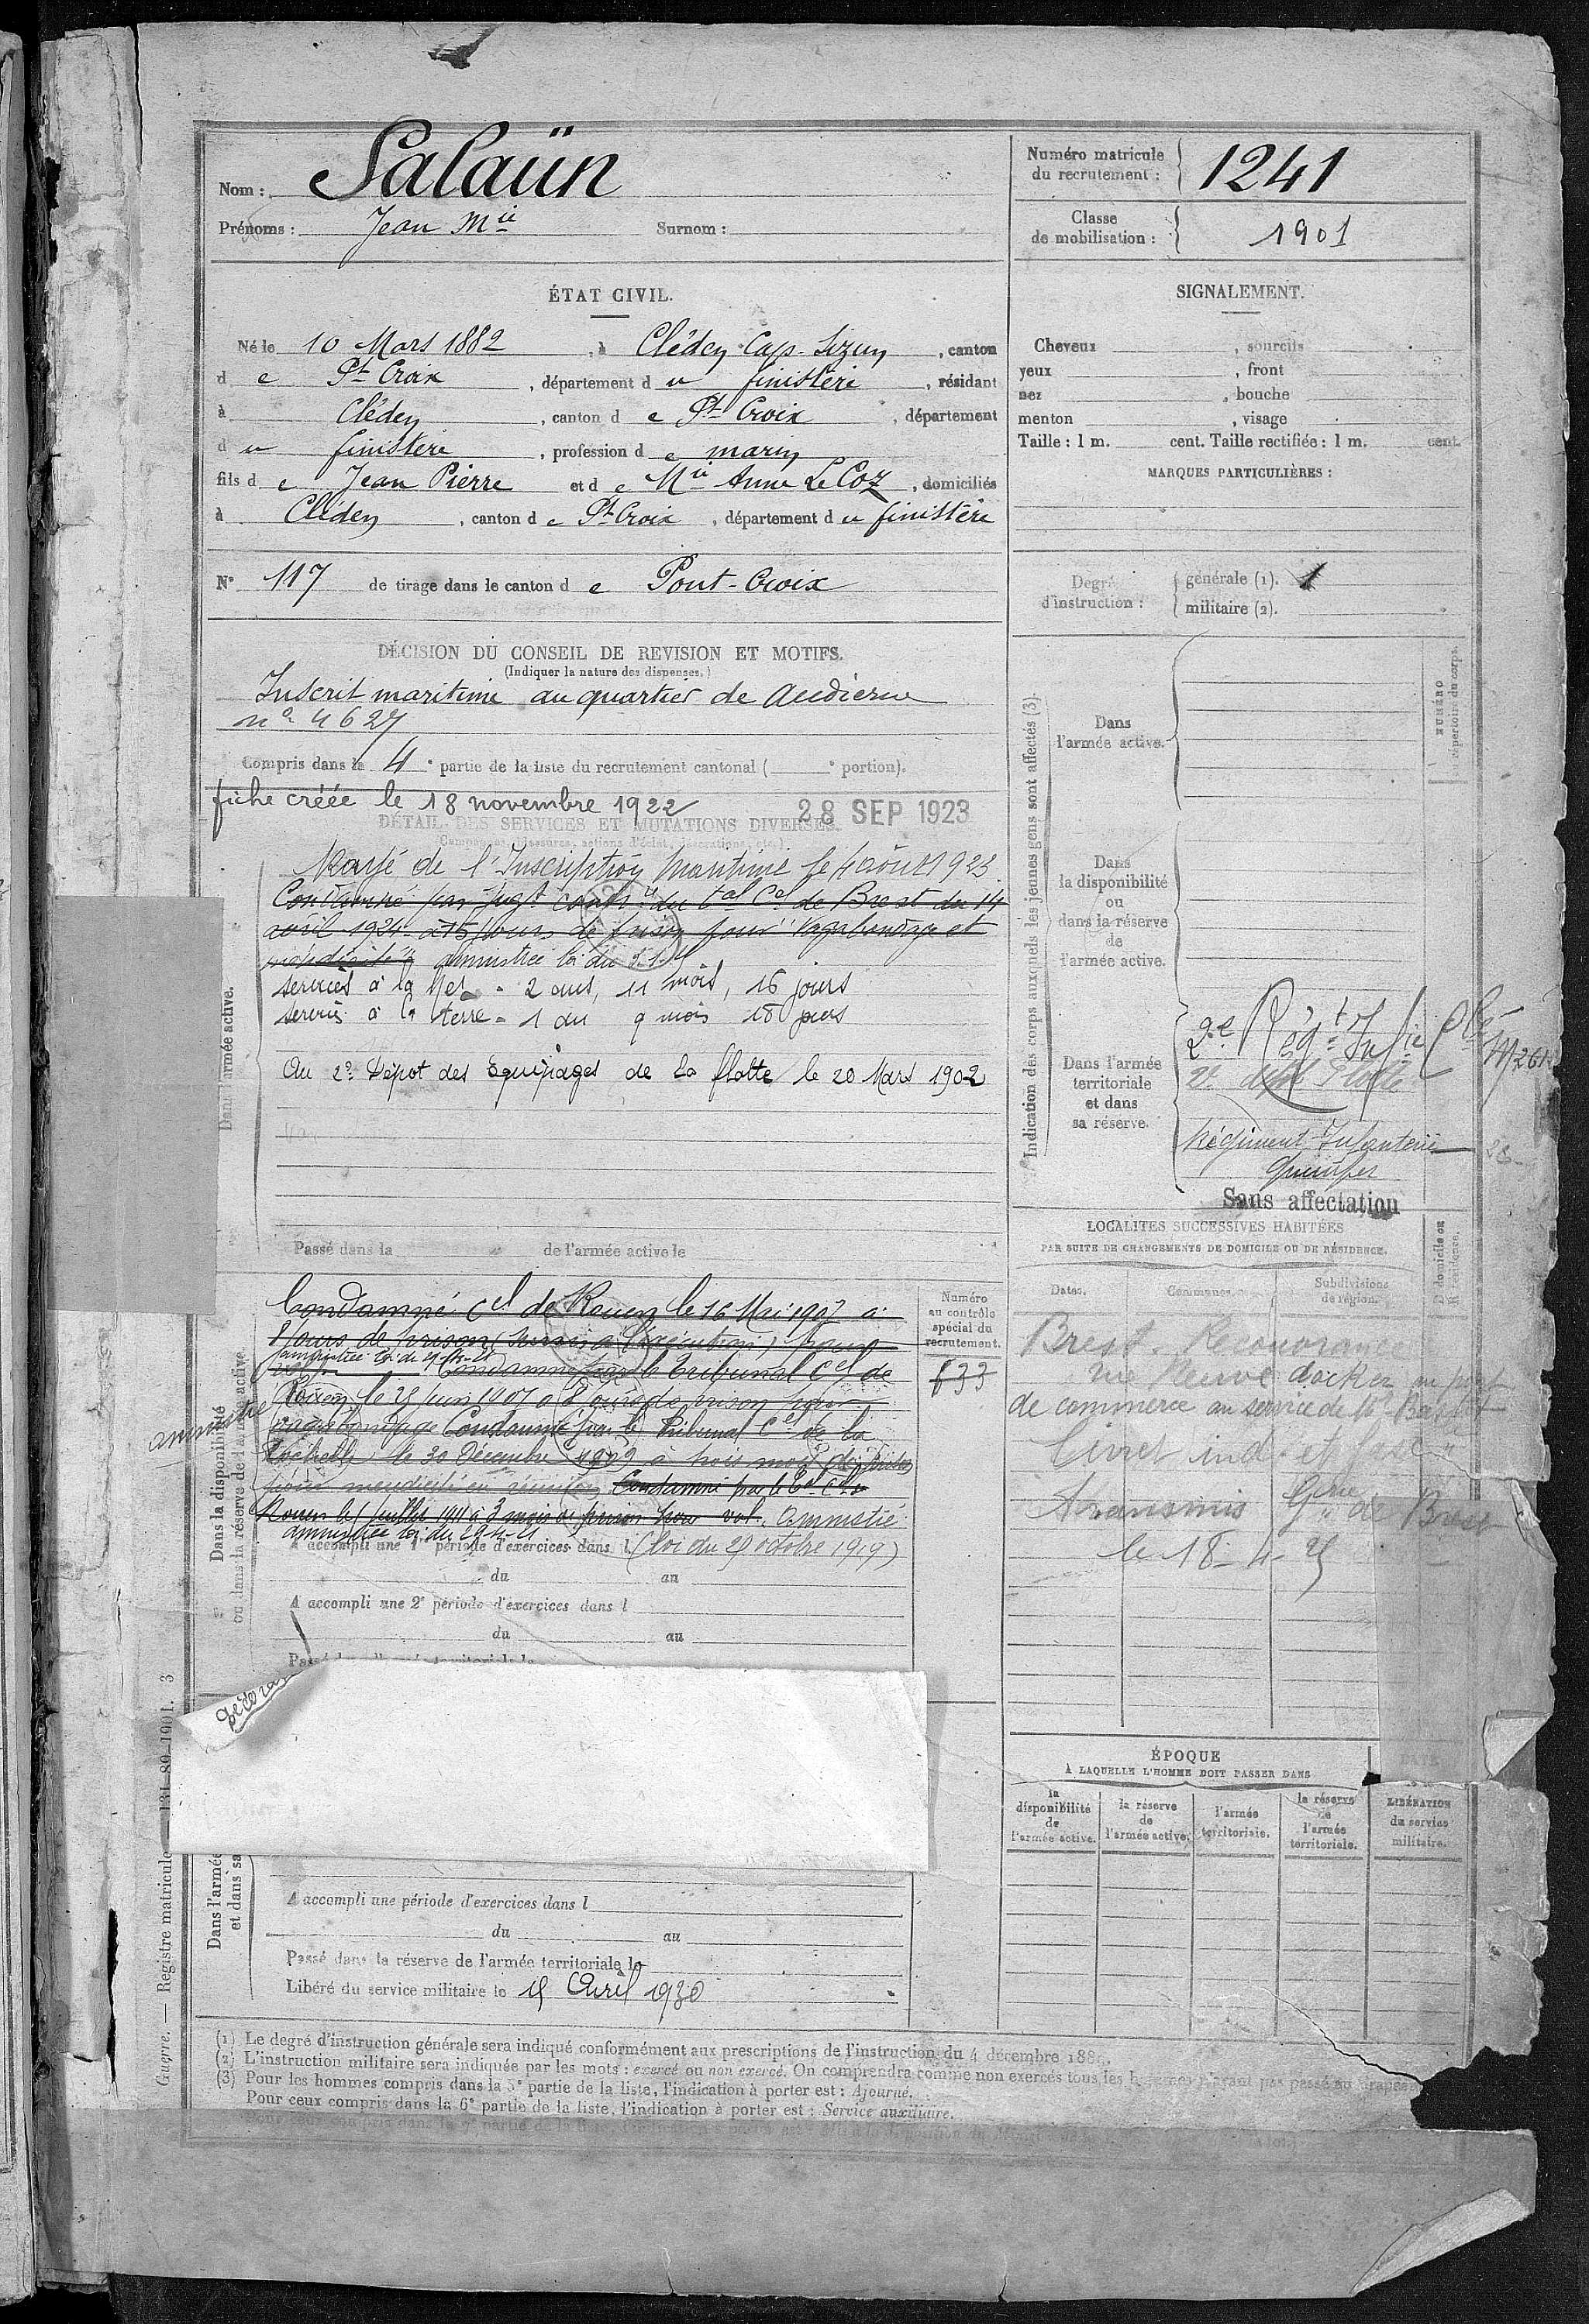 Nom : Salaün
Prénoms : Jean Mie Surnom :
Numéro matricule du recrutement : 1241
Classe de mobilisation : 1901
ÉTAT CIVIL.
Né le 10 Mars 1882, à Cléden Cap-Sizun, canton
de Pt Croix, département du finistère, résidant
à Cléden, canton de Pt Croix, département
du finistère, profession de marin
fils de Jean Pierre et de Mie Anne Le Coz, domiciliés
à Cléden, canton de Pt Croix, département du finistère
N° 117 de tirage dans le canton de Pont-Croix
DÉCISION DU CONSEIL DE REVISION ET MOTIFS.
(Indiquer la nature des dispenses.)
Inscrit maritime au quartier de Audierne
n° 4627
Compris dans la 4e partie de la liste du recrutement cantonal ( e portion).
fiche créée le 18 novembre 1922
28 SEP 1923
DÉTAIL DES SERVICES ET MUTATIONS DIVERSES.
Rayé de l'Inscription Maritime le 4 août 1923.
Condamné par Jugt contre du tal Cel de Brest du 14
avril 1924 à 15 jours de prison pour "Vagabondage et
mendicité" amnistiée loi du
services à la Mer = 2 ans, 11 mois, 16 jours
services à la terre = 1 an 9 mois 18 jours
Au 2e Dépot des Equipages de la flotte le 20 Mars 1902
Dans l'armée active.
Passé dans la de l'armée active le
Condamné Cel de Rouen le 16 Mai 1907 à
8 jours de prison (sursis à l'exécution) pour
amnistiée loi du 29-4-21
vol Condamné par le tribunal Cel de
Rouen le 25 Juin 1907 à 8 jours de prison pour
amnistié
vagabondage Condamné par le Tribunal Cel de la
Rochelle, le 30 Décembre 1909 à trois mois de prison
pour mendicité en réunion Condamné par le Tal Cel de
Rouen le 1 Juillet 1911 à 3 mois de prison pour vol. Amnistié
amnistiée loi du 29-4-21
A accompli une 1re période d'exercices dans l (loi du 29 octobre 1919)
du au
A accompli une 2e période d'exercices dans l
du au
Dans la disponibilité
ou dans la réserve de l'armée active.
Numéro
au contrôle
spécial du
recrutement.
633
Décora
Dans l'armée
et dans sa
A accompli une période d'exercices dans l
du au
Passé dans la réserve de l'armée territoriale le
Libéré du service militaire le 15 Avril 1930
SIGNALEMENT.
Cheveux , sourcils
yeux , front
nez , bouche
menton , visage
Taille : 1 m. cent. Taille rectifiée : 1 m. cent.
MARQUES PARTICULIÈRES :
Degré d'instruction : { générale (1). 1
militaire (2).
Indication des corps auxquels les jeunes gens sont affectés (3).
NUMÉRO
répertoire du corps.
Dans
l'armée active.
Dans
la disponibilité
ou
dans la réserve
de
l'armée active.
Dans l'armée
territoriale
et dans
sa réserve.
2e Régt Infie
2e dépôt Flotte
Régiment Infanterie
Quimper
Sans affectation
LOCALITÉS SUCCESSIVES HABITÉES
PAR SUITE DE CHANGEMENTS DE DOMICILE OU DE RÉSIDENCE.
Dates. Communes. Subdivisions de région. Domicile ou Résidence.
Brest, Recouvrance
rue docker au port
de commerce au service de
livret ind. et fasc.
Transmis Gerie de Brest
le 18-4-25
ÉPOQUE
À LAQUELLE L'HOMME DOIT PASSER DANS
la disponibilité de l'armée active.
la réserve de l'armée active.
l'armée territoriale.
la réserve de l'armée territoriale.
DATE
LIBÉRATION du service militaire.
(1) Le degré d'instruction générale sera indiqué conformément aux prescriptions de l'instruction du 4 décembre 188
(2) L'instruction militaire sera indiquée par les mots : exercé ou non exercé. On comprendra comme non exercés tous les hommes n'ayant pas passé au drapeau
(3) Pour les hommes compris dans la 5e partie de la liste, l'indication à porter est : Ajourné.
Pour ceux compris dans la 6e partie de la liste, l'indication à porter est : Service auxiliaire.
Guerre. — Registre matricule 131-89-1901. 3